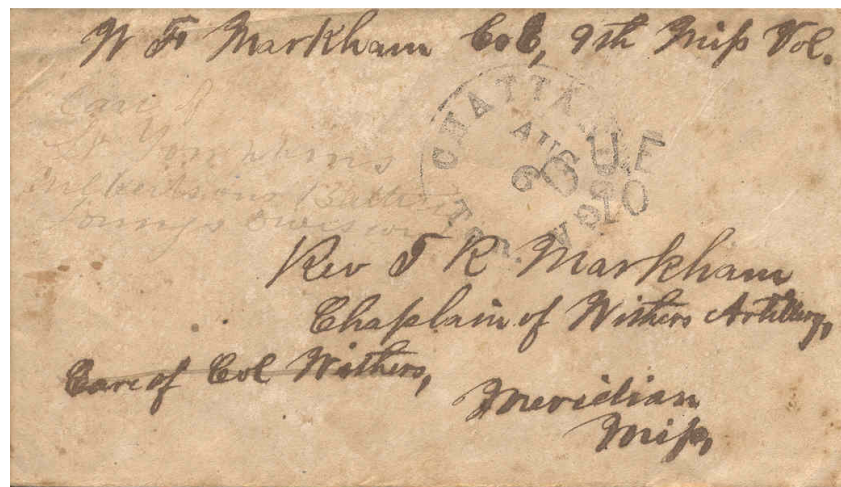 W F Markham Co C, 9th Miss Vol.
Care of
Lt Tompkins
Culbertsons Battery
Lorings Division
CHATTA
AUG
DUE
10
Rev T R Markham
Chaplain of Withers Artillery,
Care of Col Withers,
Meridian
Miss,